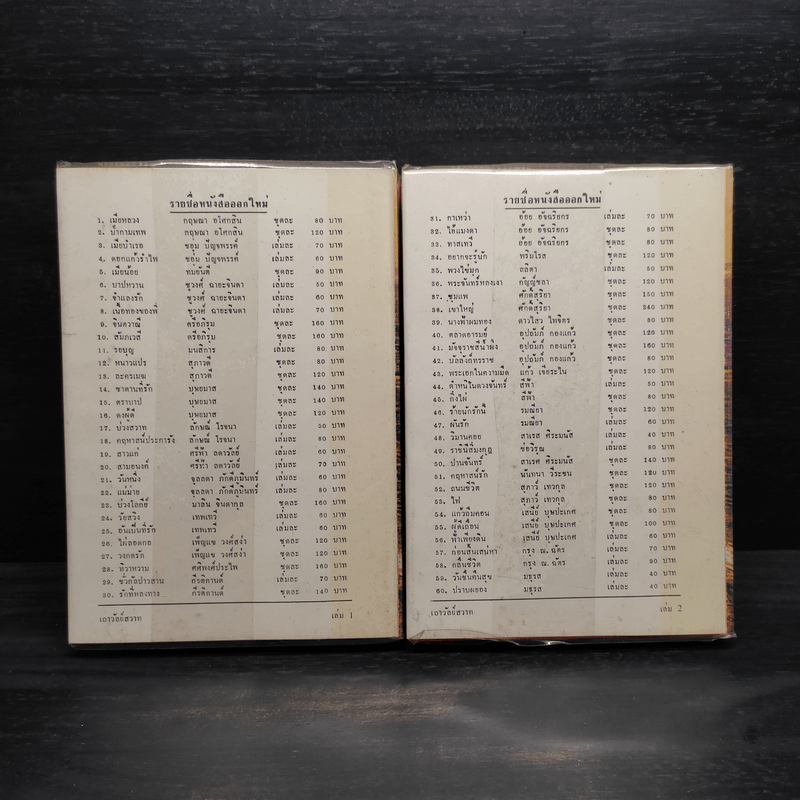 รายชื่อหนังสือออกใหม่
1. เมียหลวง กฤษณา อโศกสิน ชุดละ 80 บาท
2. ป่ากามเทพ กฤษณา อโศกสิน ชุดละ 120 บาท
3. เมียบำเรอ ชอุ่ม ปัญจพรรค์ เล่มละ 70 บาท
4. ดอกแก้วรำไพ ชอุ่ม ปัญจพรรค์ เล่มละ 60 บาท
5. เมียน้อย ทมยันตี ชุดละ 90 บาท
6. บาปหวาน ชูวงศ์ ฉายะจินดา เล่มละ 50 บาท
7. จำแลงรัก ชูวงศ์ ฉายะจินดา เล่มละ 60 บาท
8. เนื้อทองของพี่ ชูวงศ์ ฉายะจินดา เล่มละ 70 บาท
9. จินตวาตี ตรีอภิรุม ชุดละ 160 บาท
10. สัมภเวสี ตรีอภิรุม ชุดละ 160 บาท
11. รอยบุญ มนสิการ เล่มละ 80 บาท
12. หนาวแปร สุภาวดี ชุดละ 80 บาท
13. ละครเมฆ สุภาวดี ชุดละ 120 บาท
14. ซาตานที่รัก บุษยมาส ชุดละ 140 บาท
15. ตราบาป บุษยมาส ชุดละ 140 บาท
16. ดงผู้ดี บุษยมาส ชุดละ 120 บาท
17. บ่วงสวาท ลักษณ์ โรจนา เล่มละ 50 บาท
18. คฤหาสน์ปะการัง ลักษณ์ โรจนา เล่มละ 80 บาท
19. สาวแก่ ศรีฟ้า ลดาวัลย์ เล่มละ 60 บาท
20. สามอนงค์ ศรีฟ้า ลดาวัลย์ เล่มละ 70 บาท
21. วันหนึ่ง จุลลดา ภักดีภูมินทร์ เล่มละ 60 บาท
22. แม่ม่าย จุลลดา ภักดีภูมินทร์ เล่มละ 80 บาท
23. บ่วงโลกีย์ มาลิน จินดากุล ชุดละ 160 บาท
24. วัยสวิง เทพเทวี เล่มละ 60 บาท
25. อันเป็นที่รัก เทพเทวี เล่มละ 60 บาท
26. ไก่ลอดกอ เพ็ญแข วงศ์สง่า ชุดละ 120 บาท
27. วงกตรัก เพ็ญแข วงศ์สง่า ชุดละ 120 บาท
28. ทิวาหวาม ศศิพงศ์ประไพ ชุดละ 160 บาท
29. ชั่วกัลปาวสาน กีรติกานต์ เล่มละ 70 บาท
30. รักที่หลงทาง กีรติกานต์ ชุดละ 140 บาท
เถาวัลย์สวาท เล่ม 1
รายชื่อหนังสือออกใหม่
31. กาเหว่า อ้อย อัจฉริยกร เล่มละ 70 บาท
32. ไอ้แมงดา อ้อย อัจฉริยกร ชุดละ 80 บาท
33. ทาสเทวี อ้อย อัจฉริยกร ชุดละ 120 บาท
34. อยากจะรู้นัก พริมโรส เล่มละ 80 บาท
35. พวงไข่มุก ลลิตา เล่มละ 50 บาท
36. พระจันทร์หลงเงา กัญญ์ชลา ชุดละ 120 บาท
37. ชุมแพ ศักดิ์สุริยา ชุดละ 150 บาท
38. เขาใหญ่ ศักดิ์สุริยา ชุดละ 240 บาท
39. นางฟ้าผมทอง ดาวไสว ไพจิตร ชุดละ 80 บาท
40. ตลาดอารมณ์ อุปถัมภ์ กองแก้ว ชุดละ 120 บาท
41. มัจจุราชสีน้ำผึ้ง อุปถัมภ์ กองแก้ว ชุดละ 160 บาท
42. บัลลังก์ทรราช อุปถัมภ์ กองแก้ว ชุดละ 80 บาท
43. พระเอกในความมืด แก้ว เจียระไน ชุดละ 120 บาท
44. ตำหนิในดวงจันทร์ สีฟ้า เล่มละ 50 บาท
45. กิ่งไผ่ สีฟ้า ชุดละ 80 บาท
46. ร้ายนักรักนี้ รมณียา ชุดละ 120 บาท
47. ฝันรัก รมณียา เล่มละ 60 บาท
48. วิมานคอย สาเรศ ศิระมนัส เล่มละ 40 บาท
49. ราชินีสี่มงกุฎ ช่อวิรุณ เล่มละ 80 บาท
50. ปานจันทร์ สาเรศ ศิระมนัส ชุดละ 140 บาท
51. คฤหาสน์รัก นันทนา วีระชน ชุดละ 120 บาท
52. ถนนชีวิต สุภาว์ เทวกุล ชุดละ 120 บาท
53. ไฟ สุภาว์ เทวกุล ชุดละ 80 บาท
54. แก้วก็มีคอน เสนีย์ บุษปะเกศ เล่มละ 80 บาท
55. ผู้ดีเถื่อน เสนีย์ บุษปะเกศ ชุดละ 100 บาท
56. ฟ้าเพียงดิน เสนีย์ บุษปะเกศ เล่มละ 60 บาท
57. ก่อนสิ้นเสน่หา กรุง ณ. ฉัตร เล่มละ 70 บาท
58. กลืนชีวิต กรุง ณ. ฉัตร เล่มละ 90 บาท
59. วันชื่นคืนสุข มธุรส เล่มละ 40 บาท
60. ปราบพยอง มธุรส เล่มละ 40 บาท
เถาวัลย์สวาท เล่ม 2